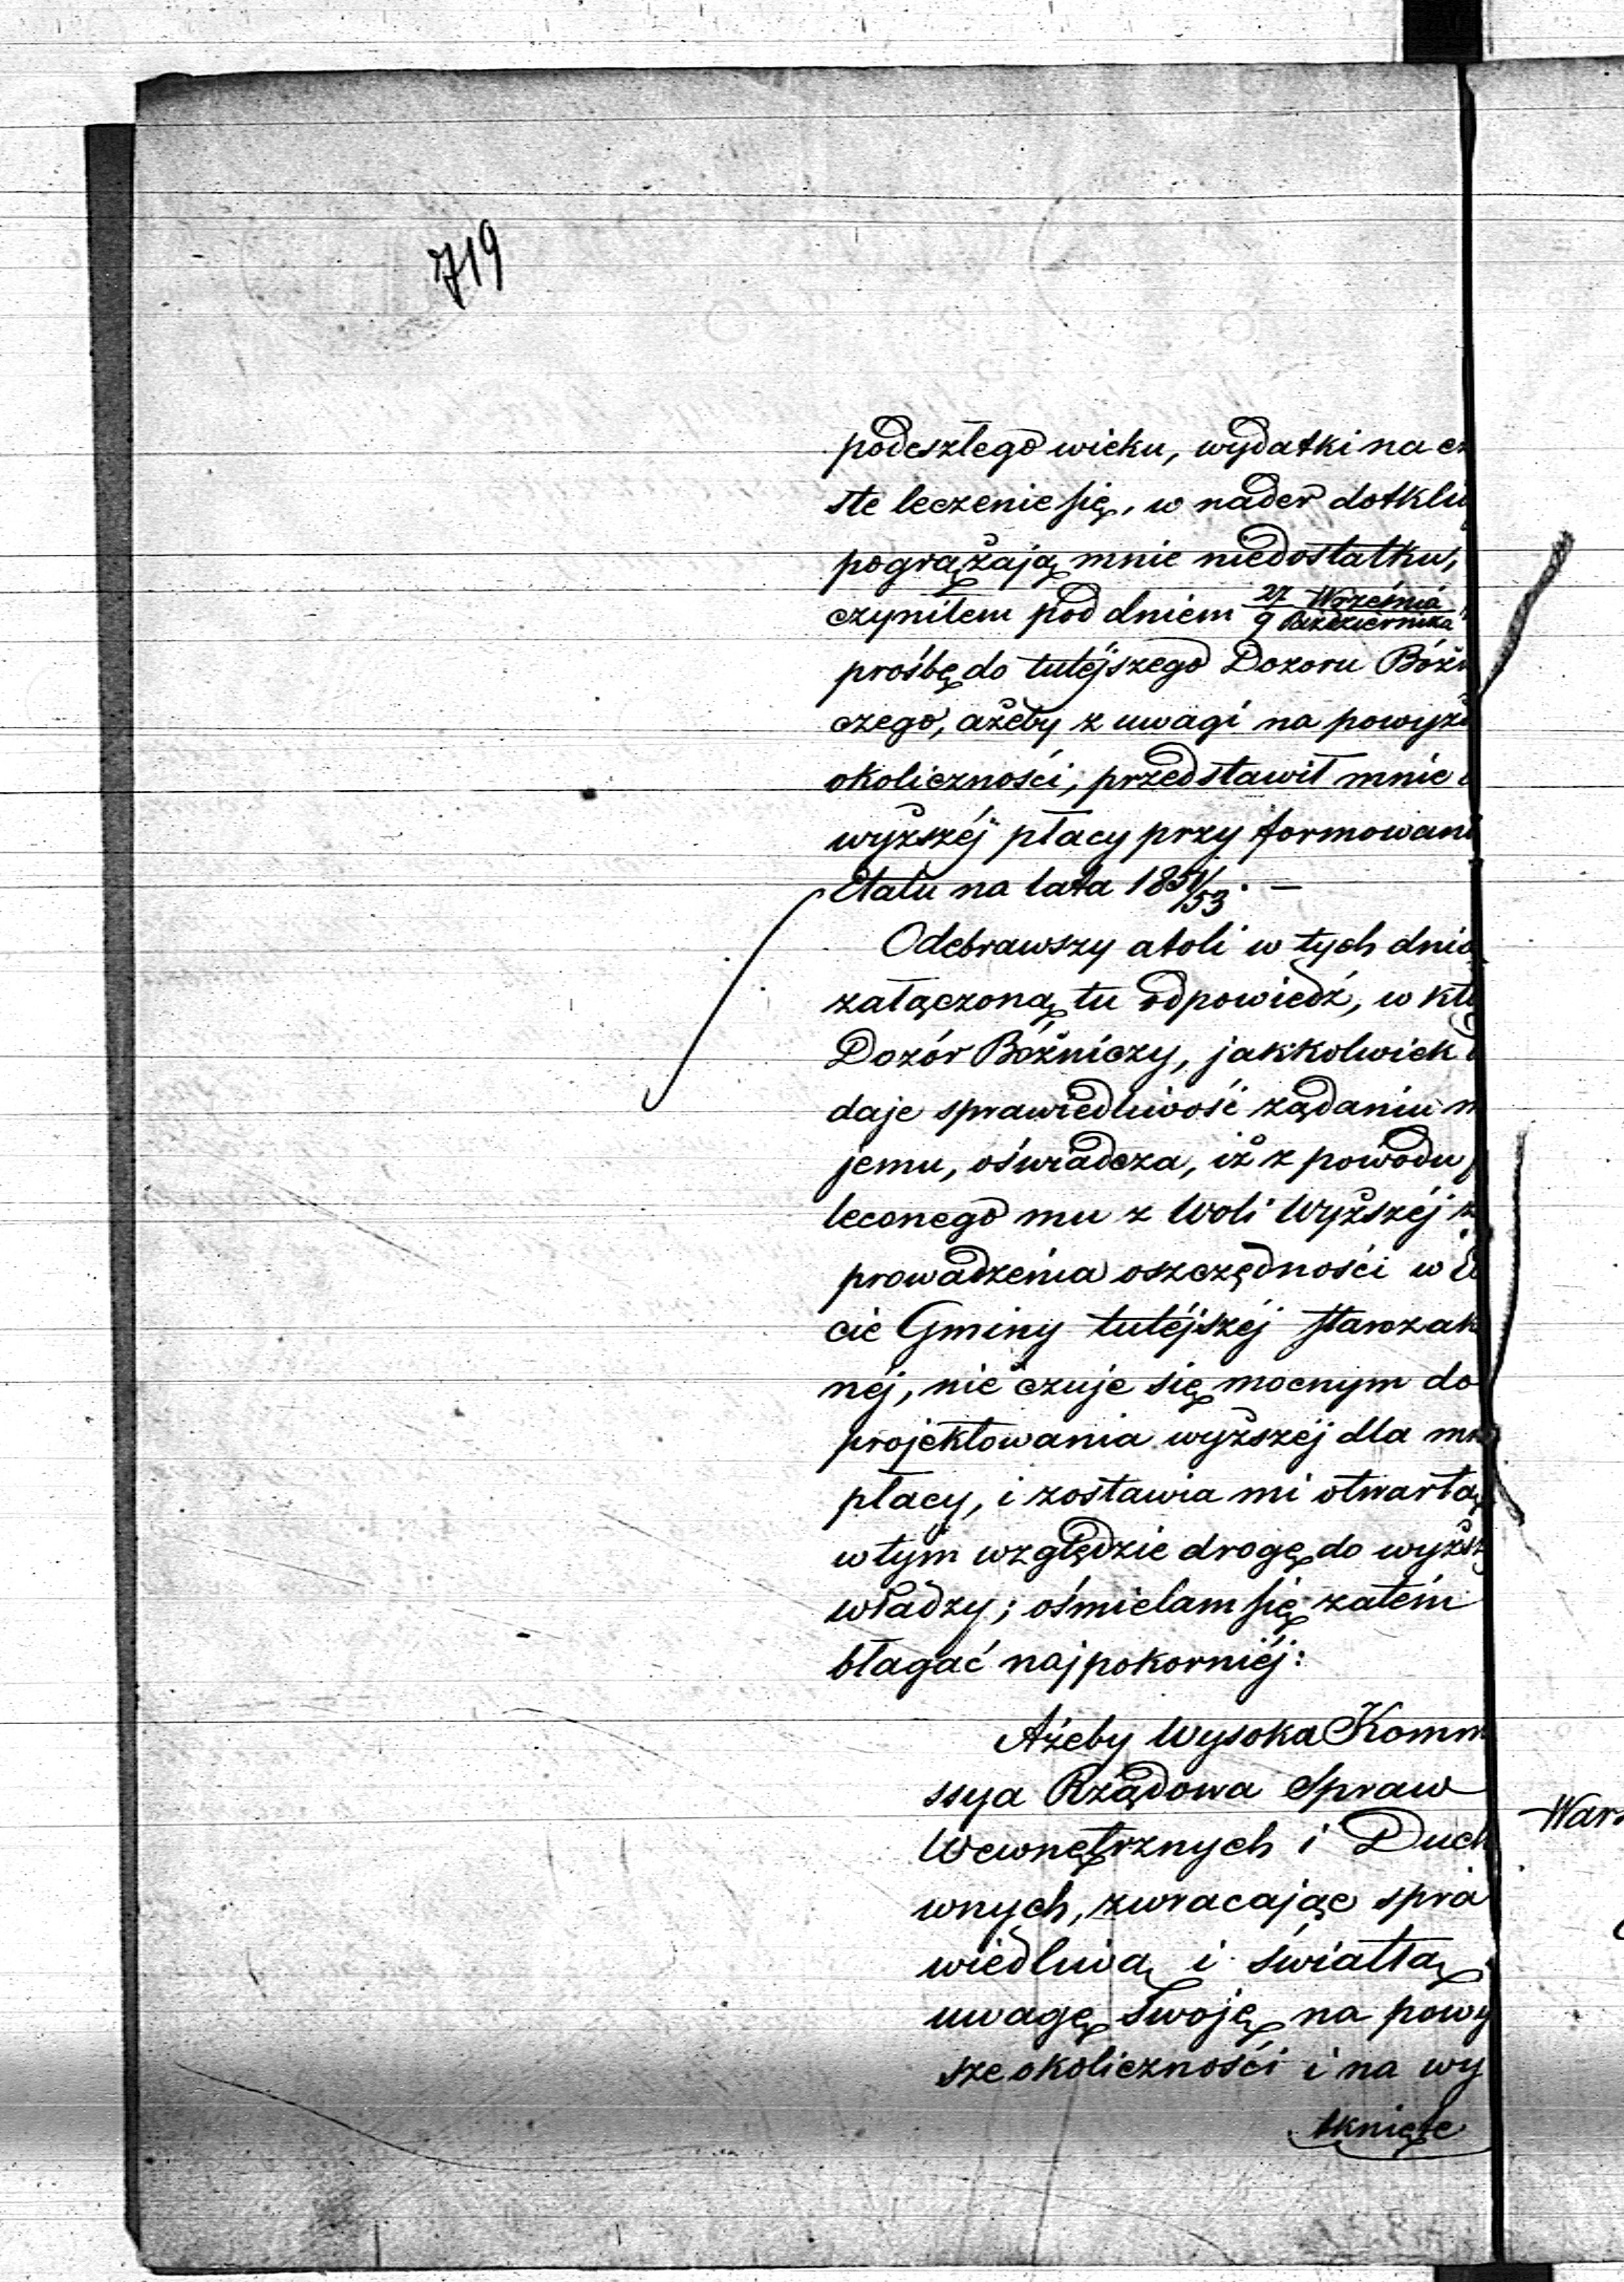 719
podeszłego wieku, wydatki na cz
ste leczenie się, w nader dotkli
pogrążają mnie niedostatku,
czyniłem pod dniem 27 Września / 9 Października
prośbę do tutéjszego Dozoru Bóżn
czego, ażeby z uwagi na powyż
okoliczności, przedstawił mnie
wyższéj płacy przy formowani
Etatu na lata 1851/53. —
Odebrawszy atoli w tych dnia
załączoną tu odpowiedź, w któ
Dozór Bóżniczy, jakkolwiek
daje sprawiedliwość żądaniu m
jemu, oświadcza, iż z powodu
leconego mu z Woli Wyższéj
prowadzenia oszczędności w E
cie Gminy tutéjszéj starozak
néj, nie czuje się mocnym do
projektowania wyższéj dla mn
płacy, i zostawia mi otwartą
w tym względzie drogę do wyższ
władzy; ośmielam się zatém
błagać najpokorniéj:
Ażeby Wysoka Komm
ssya Rządowa Spraw
Wewnętrznych i Duch
wnych, zwracając spra
wiedliwą i światłą
uwagę Swoję na powy
sze okoliczności i na wy
tknięte
Wars